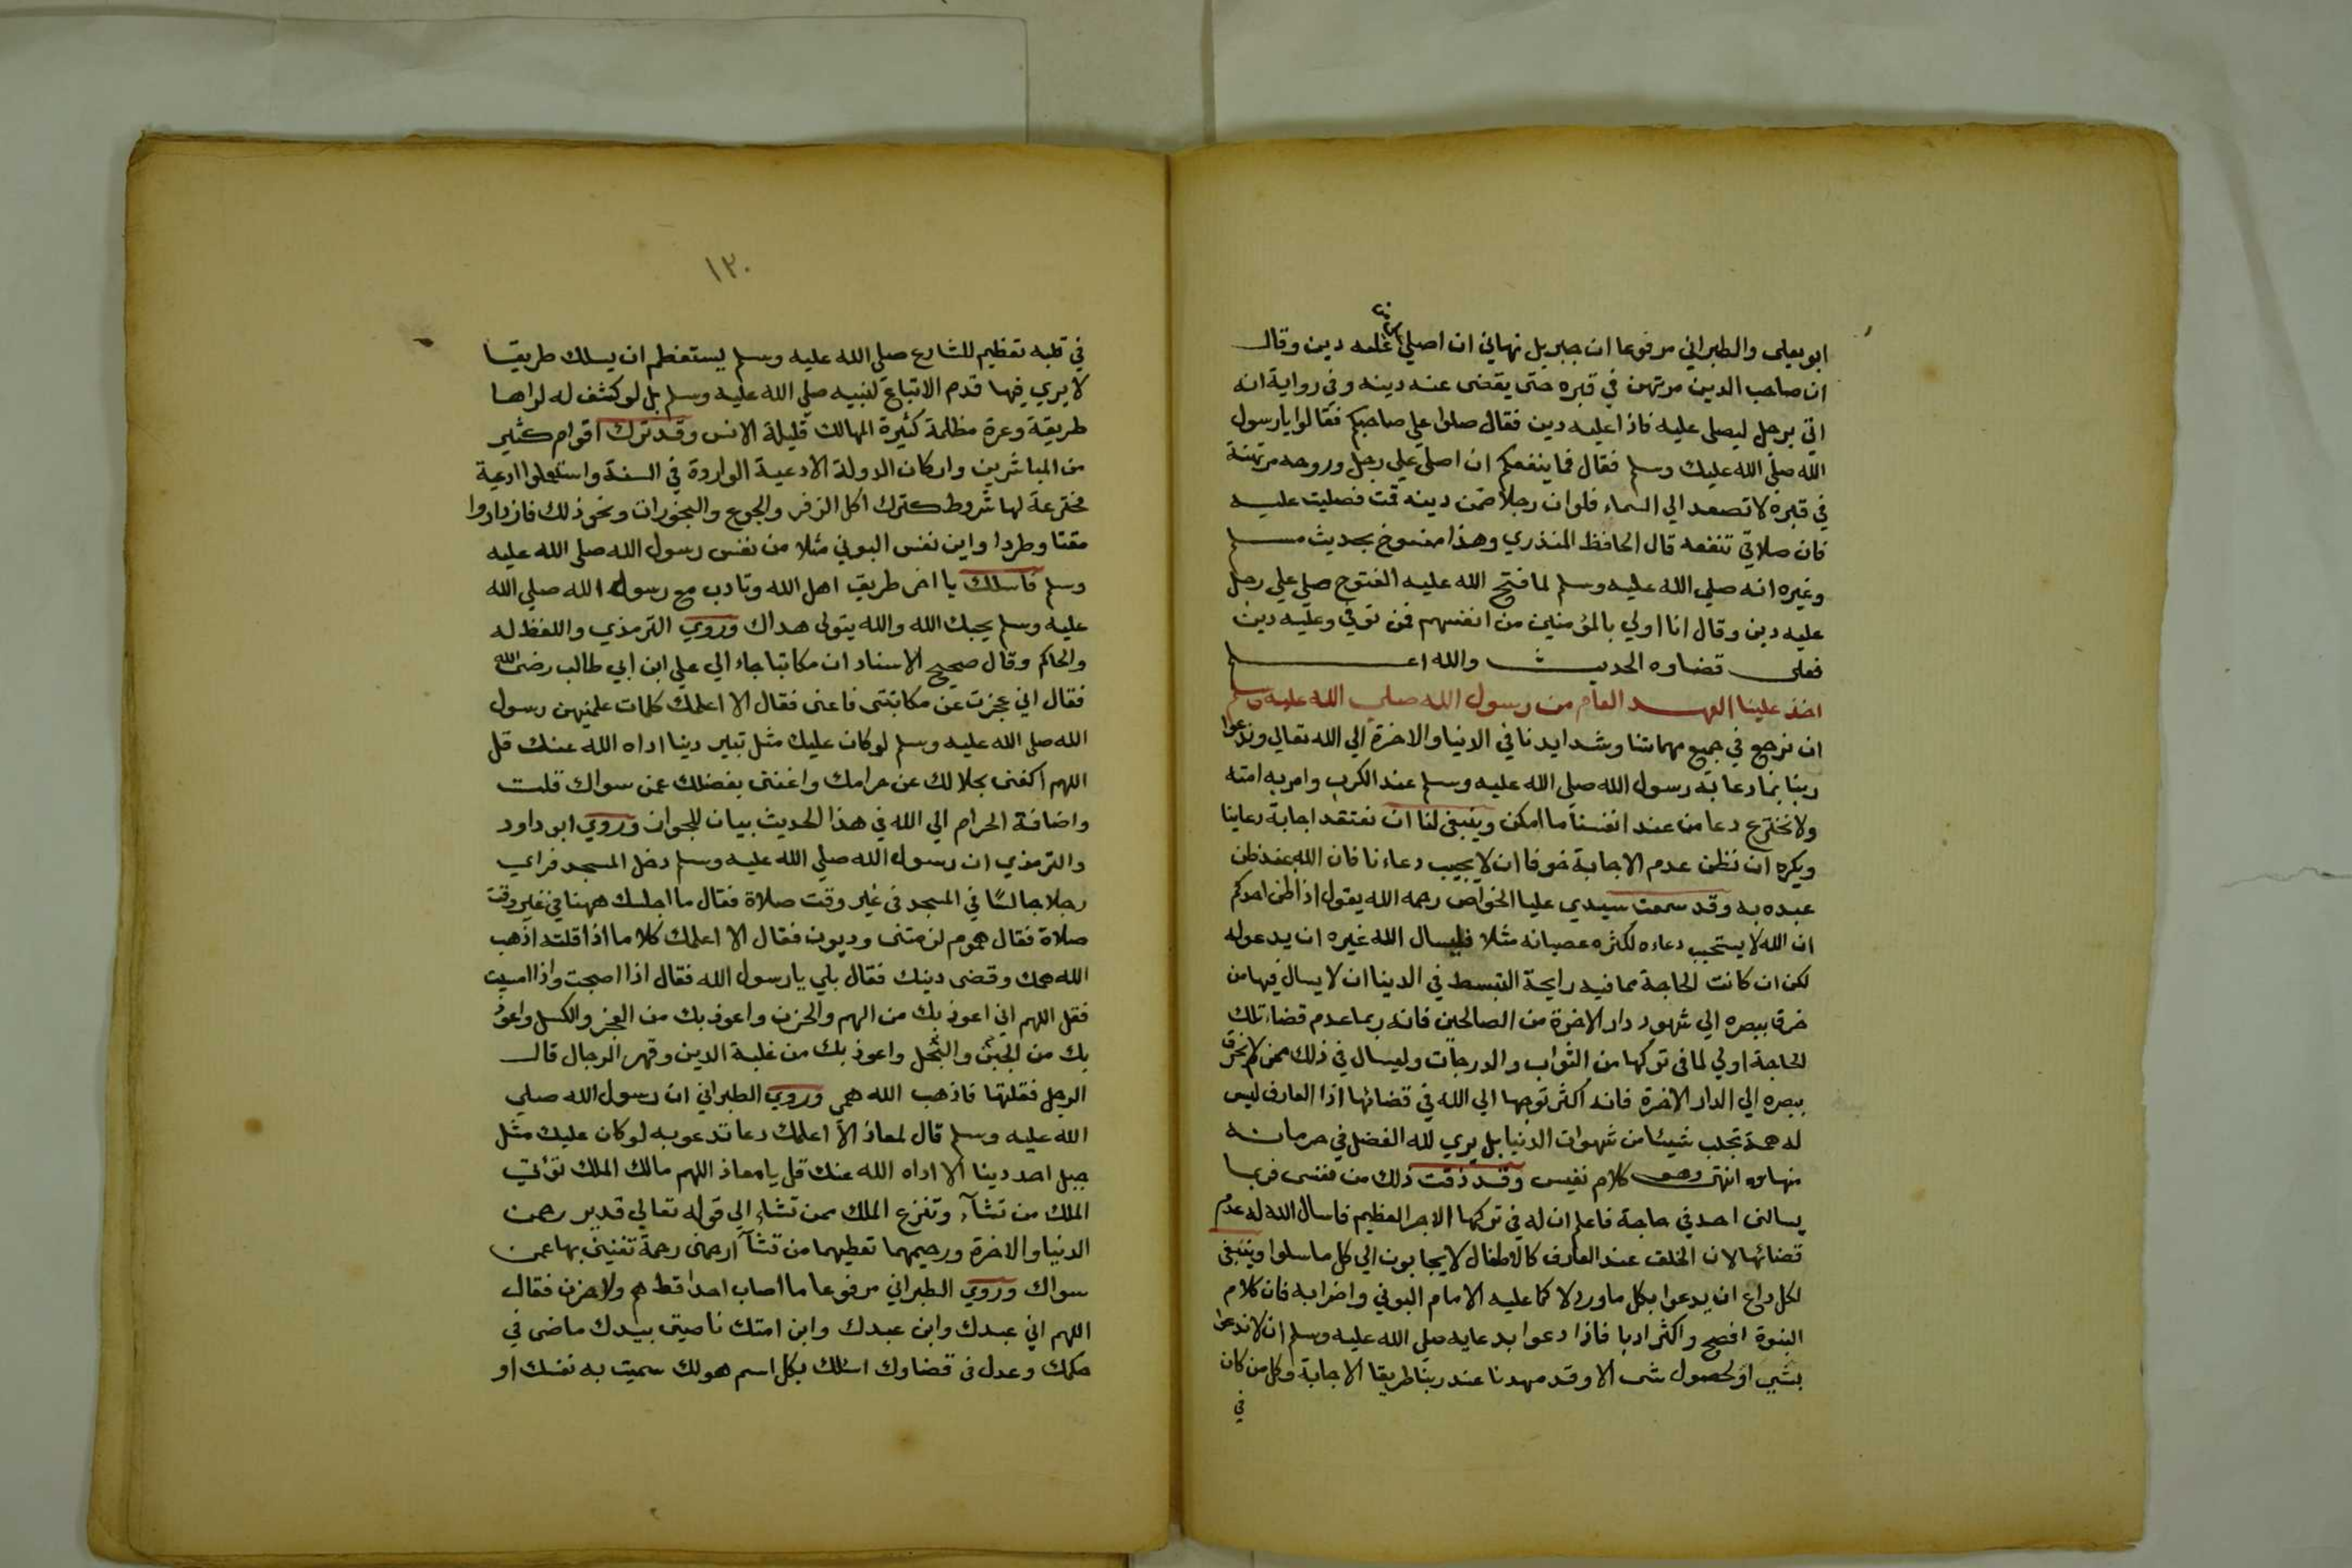 ابو يعلى والطبراني مرفوعا ان جبريل نهاني ان اصلي على من عليه دين وقال
ان صاحب الدين مرتهن في قبره حتى يقضى عنه دينه وفي رواية انه
اتي برجل ليصلي عليه فاذا عليه دين فقال صلوا علي صاحبكم فقالوا يا رسول
الله صلي الله عليك وسلم فقال فما ينفعكم ان اصلي علي رجل وروحه مرتهنة
في قبره لا تصعد الي السماء فلو ان رجلا ضمن دينه قمت فصليت عليه
فان صلاتي تنفعه قال الحافظ المنذري وهذا منسوخ بحديث مسلم
وغيره انه صلي الله عليه وسلم لما فتح الله عليه الفتوح صلي علي رجل
عليه دين وقال انا اولي بالمؤمنين من انفسهم فمن توفي وعليه دين
فعلى قضاوه الحديث والله اعلم
اخذ علينا العهد العام من رسول الله صلي الله عليه وسلم
ان نرجع في جميع مهماتنا وشدايدنا في الدنيا والاخرة الي الله تعالي وندعوا
ربنا بما دعا به رسول الله صلي الله عليه وسلم عند الكرب وامر به امته
ولا نخترع دعا من عند انفسنا ما امكن وينبغي لنا ان نعتقد اجابة دعاينا
ويكره ان نظن عدم الاجابة خوفا ان لا يجيب دعاءنا فان الله عند ظن
عبده به وقد سمعت سيدي عليا الخواص رحمه الله يقول اذا ظن احدكم
ان الله لا يستجيب دعاءه لكثره عصيانه مثلا فليسال الله غيره ان يدعو له
لكن ان كانت الحاجة مما فيه رايحة التبسط في الدنيا ان لا يسال فيها من
خرق ببصره الي شهود دار الاخرة من الصالحين فانه ربما عدم قضاء تلك
الحاجة اولي لما في تركها من الثواب والدرجات وليسال في ذلك ممن لم يخرق
ببصره الي الدار الاخرة فانه اكثر توجها الي الله في قضائها اذا العارف ليس
له همة تجلب شيئا من شهوات الدنيا بل يري لله الفضل في حرمانه
منها انتهى وهو كلام نفيس وقد ذقت ذلك من نفسى فربما
يسالني احد في حاجة فاعلم ان له في تركها الاجر العظيم فاسال الله له عدم
قضائها لان الخلق عند العارف كالاطفال لا يجابون الي كل ما سلوا وينبغي
لكل داع ان يدعوا بكل ما ورد لا كما عليه الامام البوني واضرابه فان كلام
النبوة افصح واكثر ادبا فاذا دعوا بدعايه صلي الله عليه وسلم ان لا ندعوا
بشي او لحصول شى الا وقد مهدنا عند ربنا طريقا الاجابة وكل من كان
في
١٣٠
في قلبه تعظيم للشارع صلي الله عليه وسلم يستعظم ان يسلك طريقا
لا يري فيها قدم الاتباع لنبيه صلي الله عليه وسلم بل لو كشف له لراها
طريقة وعرة مظلمة كثيرة المهالك قليلة الانس وقد ترك اقوام كثير
من المباشرين واركان الدولة الادعية الواردة في السنة واستعملوا ادعية
مخترعة لها شروط كترك اكل الزفر والجوع والبخورات ونحو ذلك فازدادوا
مقتا وطردا واين نفس البوني مثلا من نفس رسول الله صلى الله عليه
وسلم فاسلك يا اخى طريق اهل الله وتادب مع رسول الله صلي الله
عليه وسلم يحبك الله والله يتولى هداك وروي الترمذي واللفظ له
والحاكم وقال صحيح الاسناد ان مكاتبا جاء الي علي ابن ابي طالب رضى الله
فقال اني عجزت عن مكاتبتى فاعنى فقال الا اعلمك كلمات علمنيهن رسول
الله صلى الله عليه وسلم لو كان عليك مثل تبير دينا اداه الله عنك قل
اللهم اكفنى بحلالك عن حرامك واغننى بفضلك عمن سواك قلت
واضافة الحرام الي الله في هذا الحديث بيان للجواز وروي ابو داود
والترمذي ان رسول الله صلي الله عليه وسلم دخل المسجد فراي
رجلا جالسًا في المسجد في غير وقت صلاة فقال ما اجلسك ههنا في غير وقت
صلاة فقال هموم لزمتنى وديون فقال الا اعلمك كلاما اذا قلته اذهب
الله همك وقضى دينك فقال بلي يا رسول الله فقال اذا اصبحت واذا امسيت
فقل اللهم اني اعوذ بك من الهم والحزن واعوذ بك من العجز والكسل واعوذ
بك من الجبن والبخل واعوذ بك من غلبة الدين وقهر الرجال قال
الرجل فقلتها فاذهب الله همى وروي الطبراني ان رسول الله صلي
الله عليه وسلم قال لمعاذ الا اعلمك دعا تدعو به لو كان عليك مثل
جبل احد دينا الا اداه الله عنك قل يا معاذ اللهم مالك الملك تؤتي
الملك من تشآء وتنزع الملك ممن تشاء الي قوله تعالي قدير رحمن
الدنيا والاخرة ورحيمهما تعطيهما من تشآ ارحمنى رحمة تغنيني بها عمن
سواك وروي الطبراني مرفوعا ما اصاب احدا قط هم ولا حزن فقال
اللهم اني عبدك وابن عبدك وابن امتك ناصيتى بيدك ماضى في
حكمك وعدل فى قضاوك اسئلك بكل اسم هو لك سميت به نفسك او